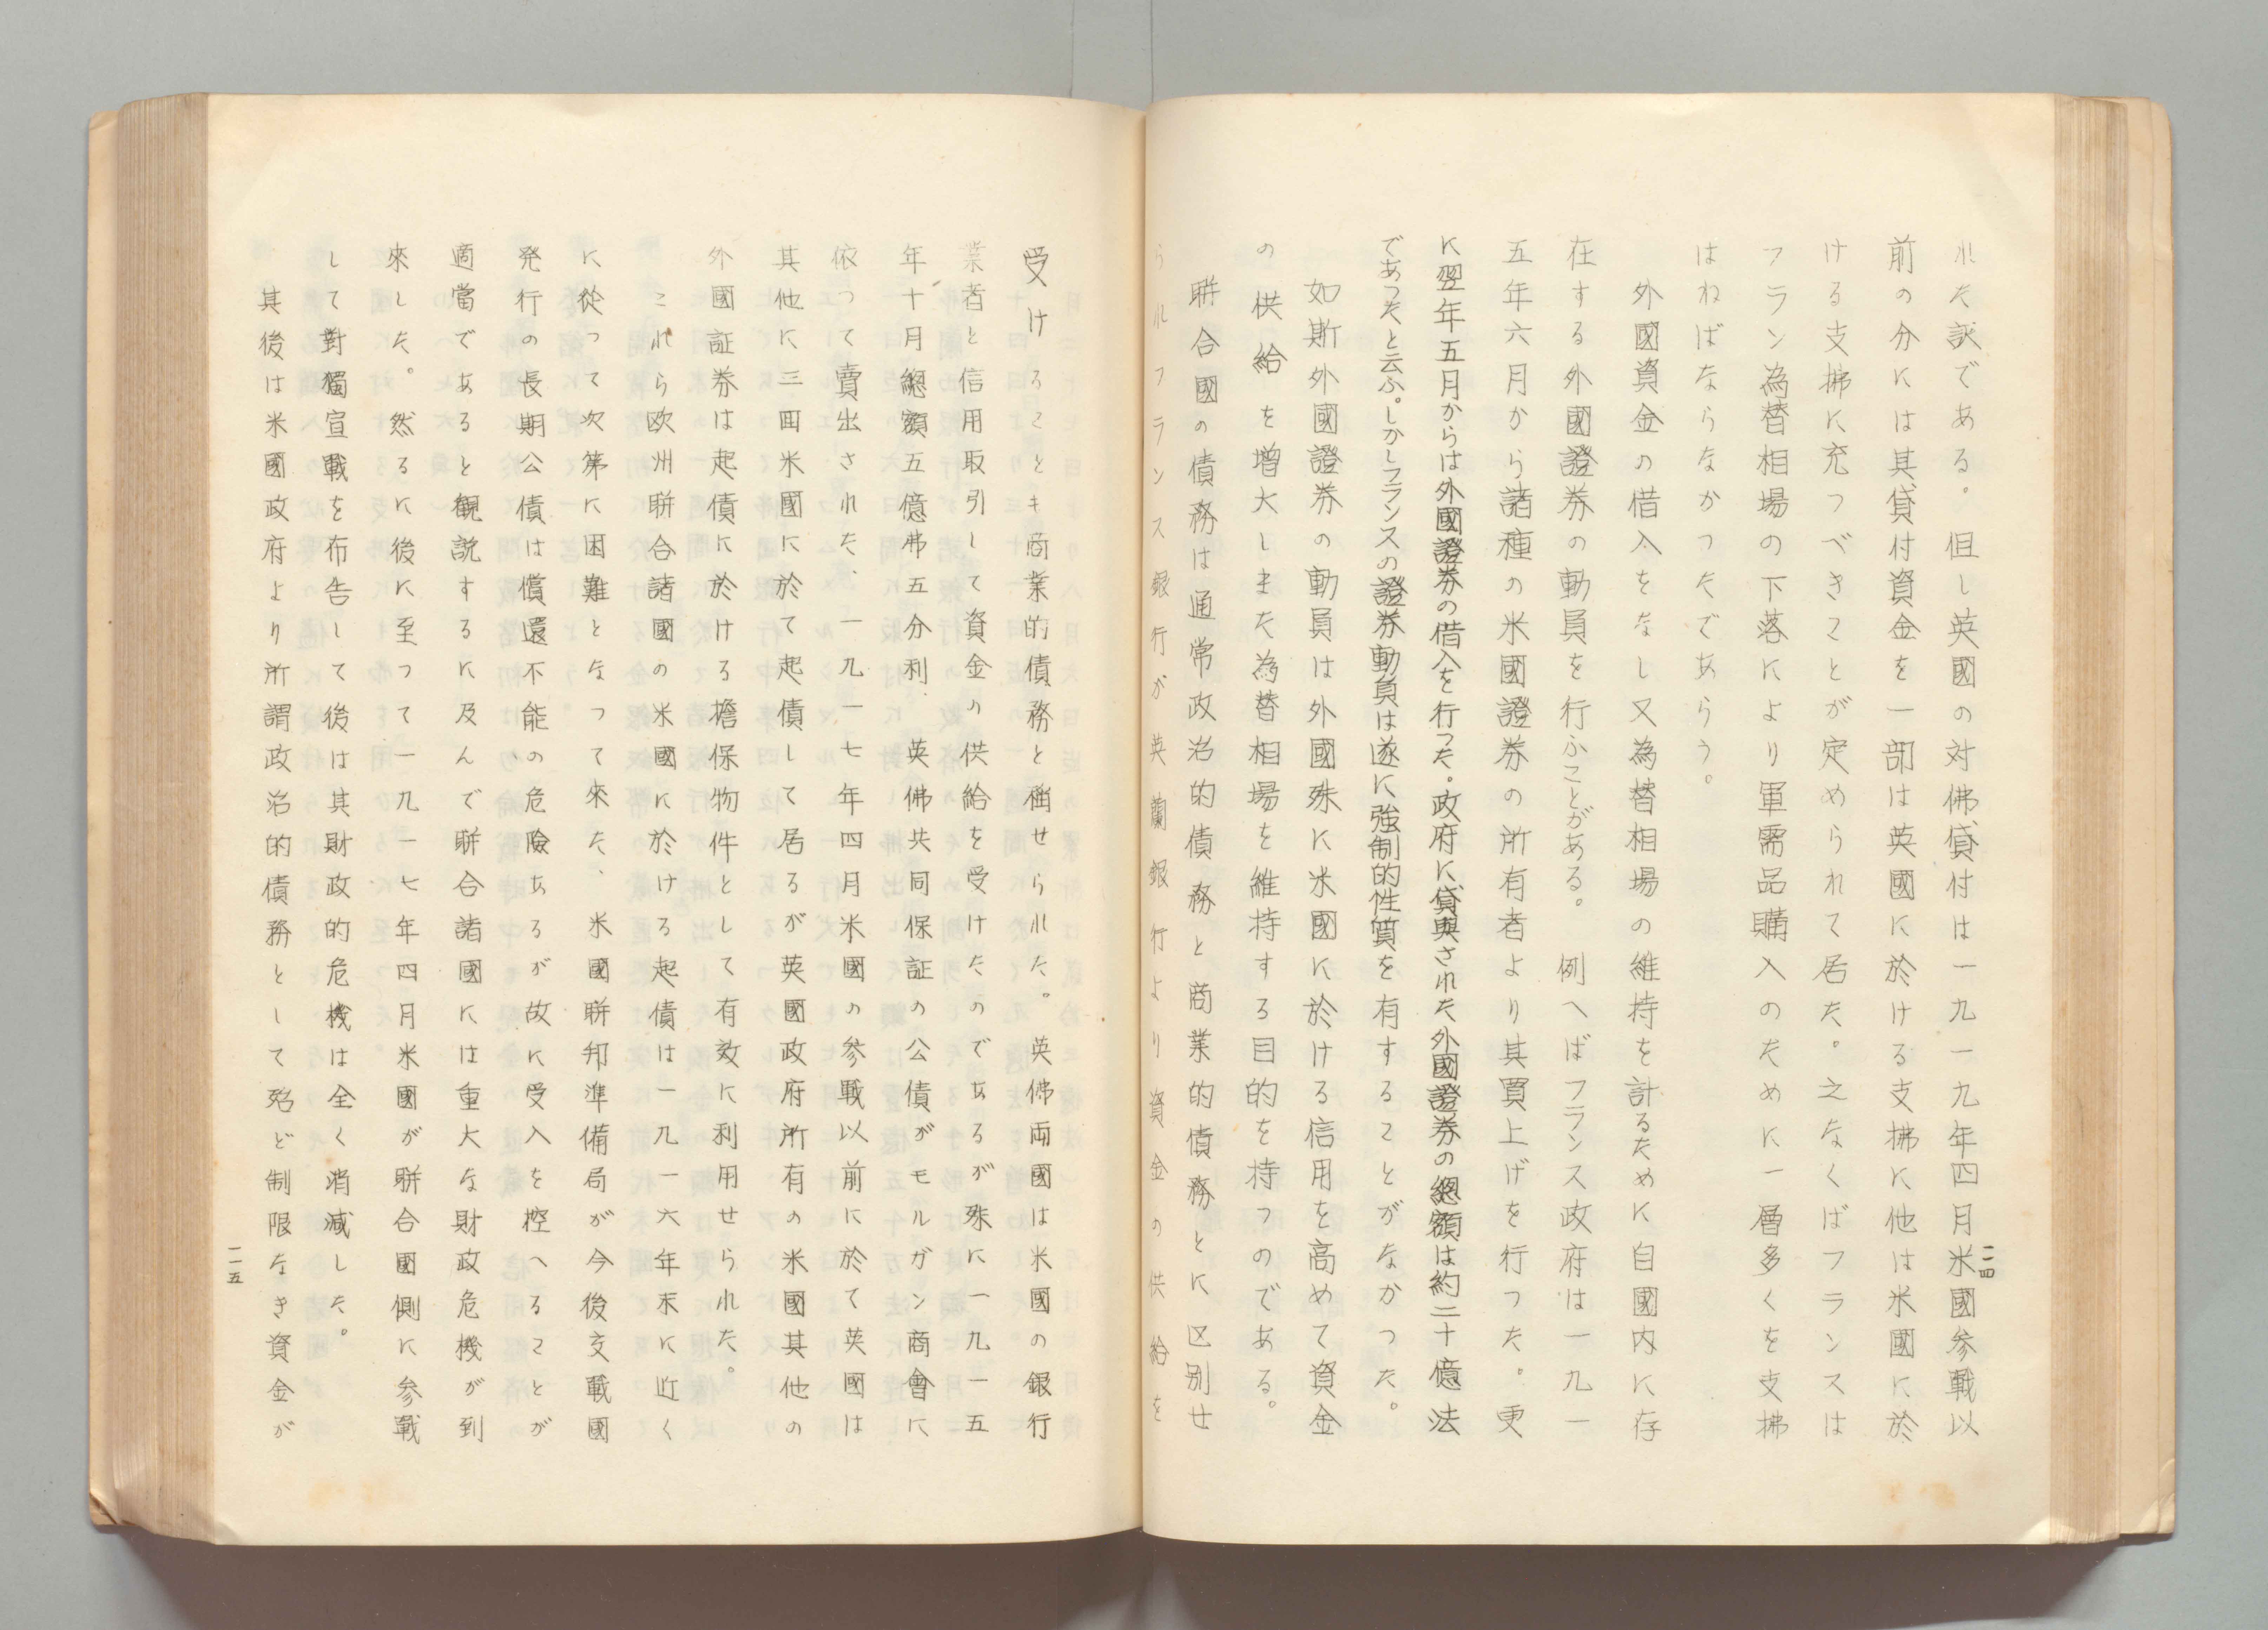 れた訳である。但し英國の対佛貸付は一九一九年四月米國参戰以
前の分には其貸付資金を一部は英國に於ける支拂に他は米國に於
ける支拂に充つべきことが定められて居た。之なくばフランスは
フラン為替相場の下落により軍需品購入のために一層多くを支拂
はねばならなかつたであらう。
外國資金の借入をなし又為替相場の維持を計るために自國内に存
在する外國證券の動員を行ふことがある。例へばフランス政府は一九一
五年六月から諸種の米國證券の所有者より其買上げを行つた。更
に翌年五月からは外國證券の借入を行つた。政府に貸與された外國證券の總額は約二十億法
であつたと云ふ。しかしフランスの證券動員は遂に強制的性質を有することがなかつた。
如斯外國證券の動員は外國殊に米國に於ける信用を高めて資金
の供給を増大しまた為替相場を維持する目的を持つのである。
聨合國の債務は通常政治的債務と商業的債務とに区別せ
られフランス銀行が英蘭銀行より資金の供給を
一一四
受けることも商業的債務と稱せられた。英佛両國は米國の銀行
業者と信用取引して資金の供給を受けたのであるが殊に一九一五
年十月總額五億弗五分利、英佛共同保証の公債がモルガン商會に
依つて賣出された、一九一七年四月米國の参戰以前に於て英國は
其他に三四米國に於て起債して居るが英國政府所有の米國其他の
外國証券は起債に於ける擔保物件として有效に利用せられた。
これら欧州聨合諸國の米國に於ける起債は一九一六年末に近く
に從つて次第に困難となつて來た、米國聨邦準備局が今後交戰國
発行の長期公債は償還不能の危險あるが故に受入を控へることが
適當であると観説するに及んで聨合諸國には重大な財政危機が到
來した。然るに後に至つて一九一七年四月米國が聨合國側に参戰
して對獨宣戰を布告して後は其財政的危機は全く消滅した。
其後は米國政府より所謂政治的債務として殆ど制限なき資金が
一一五